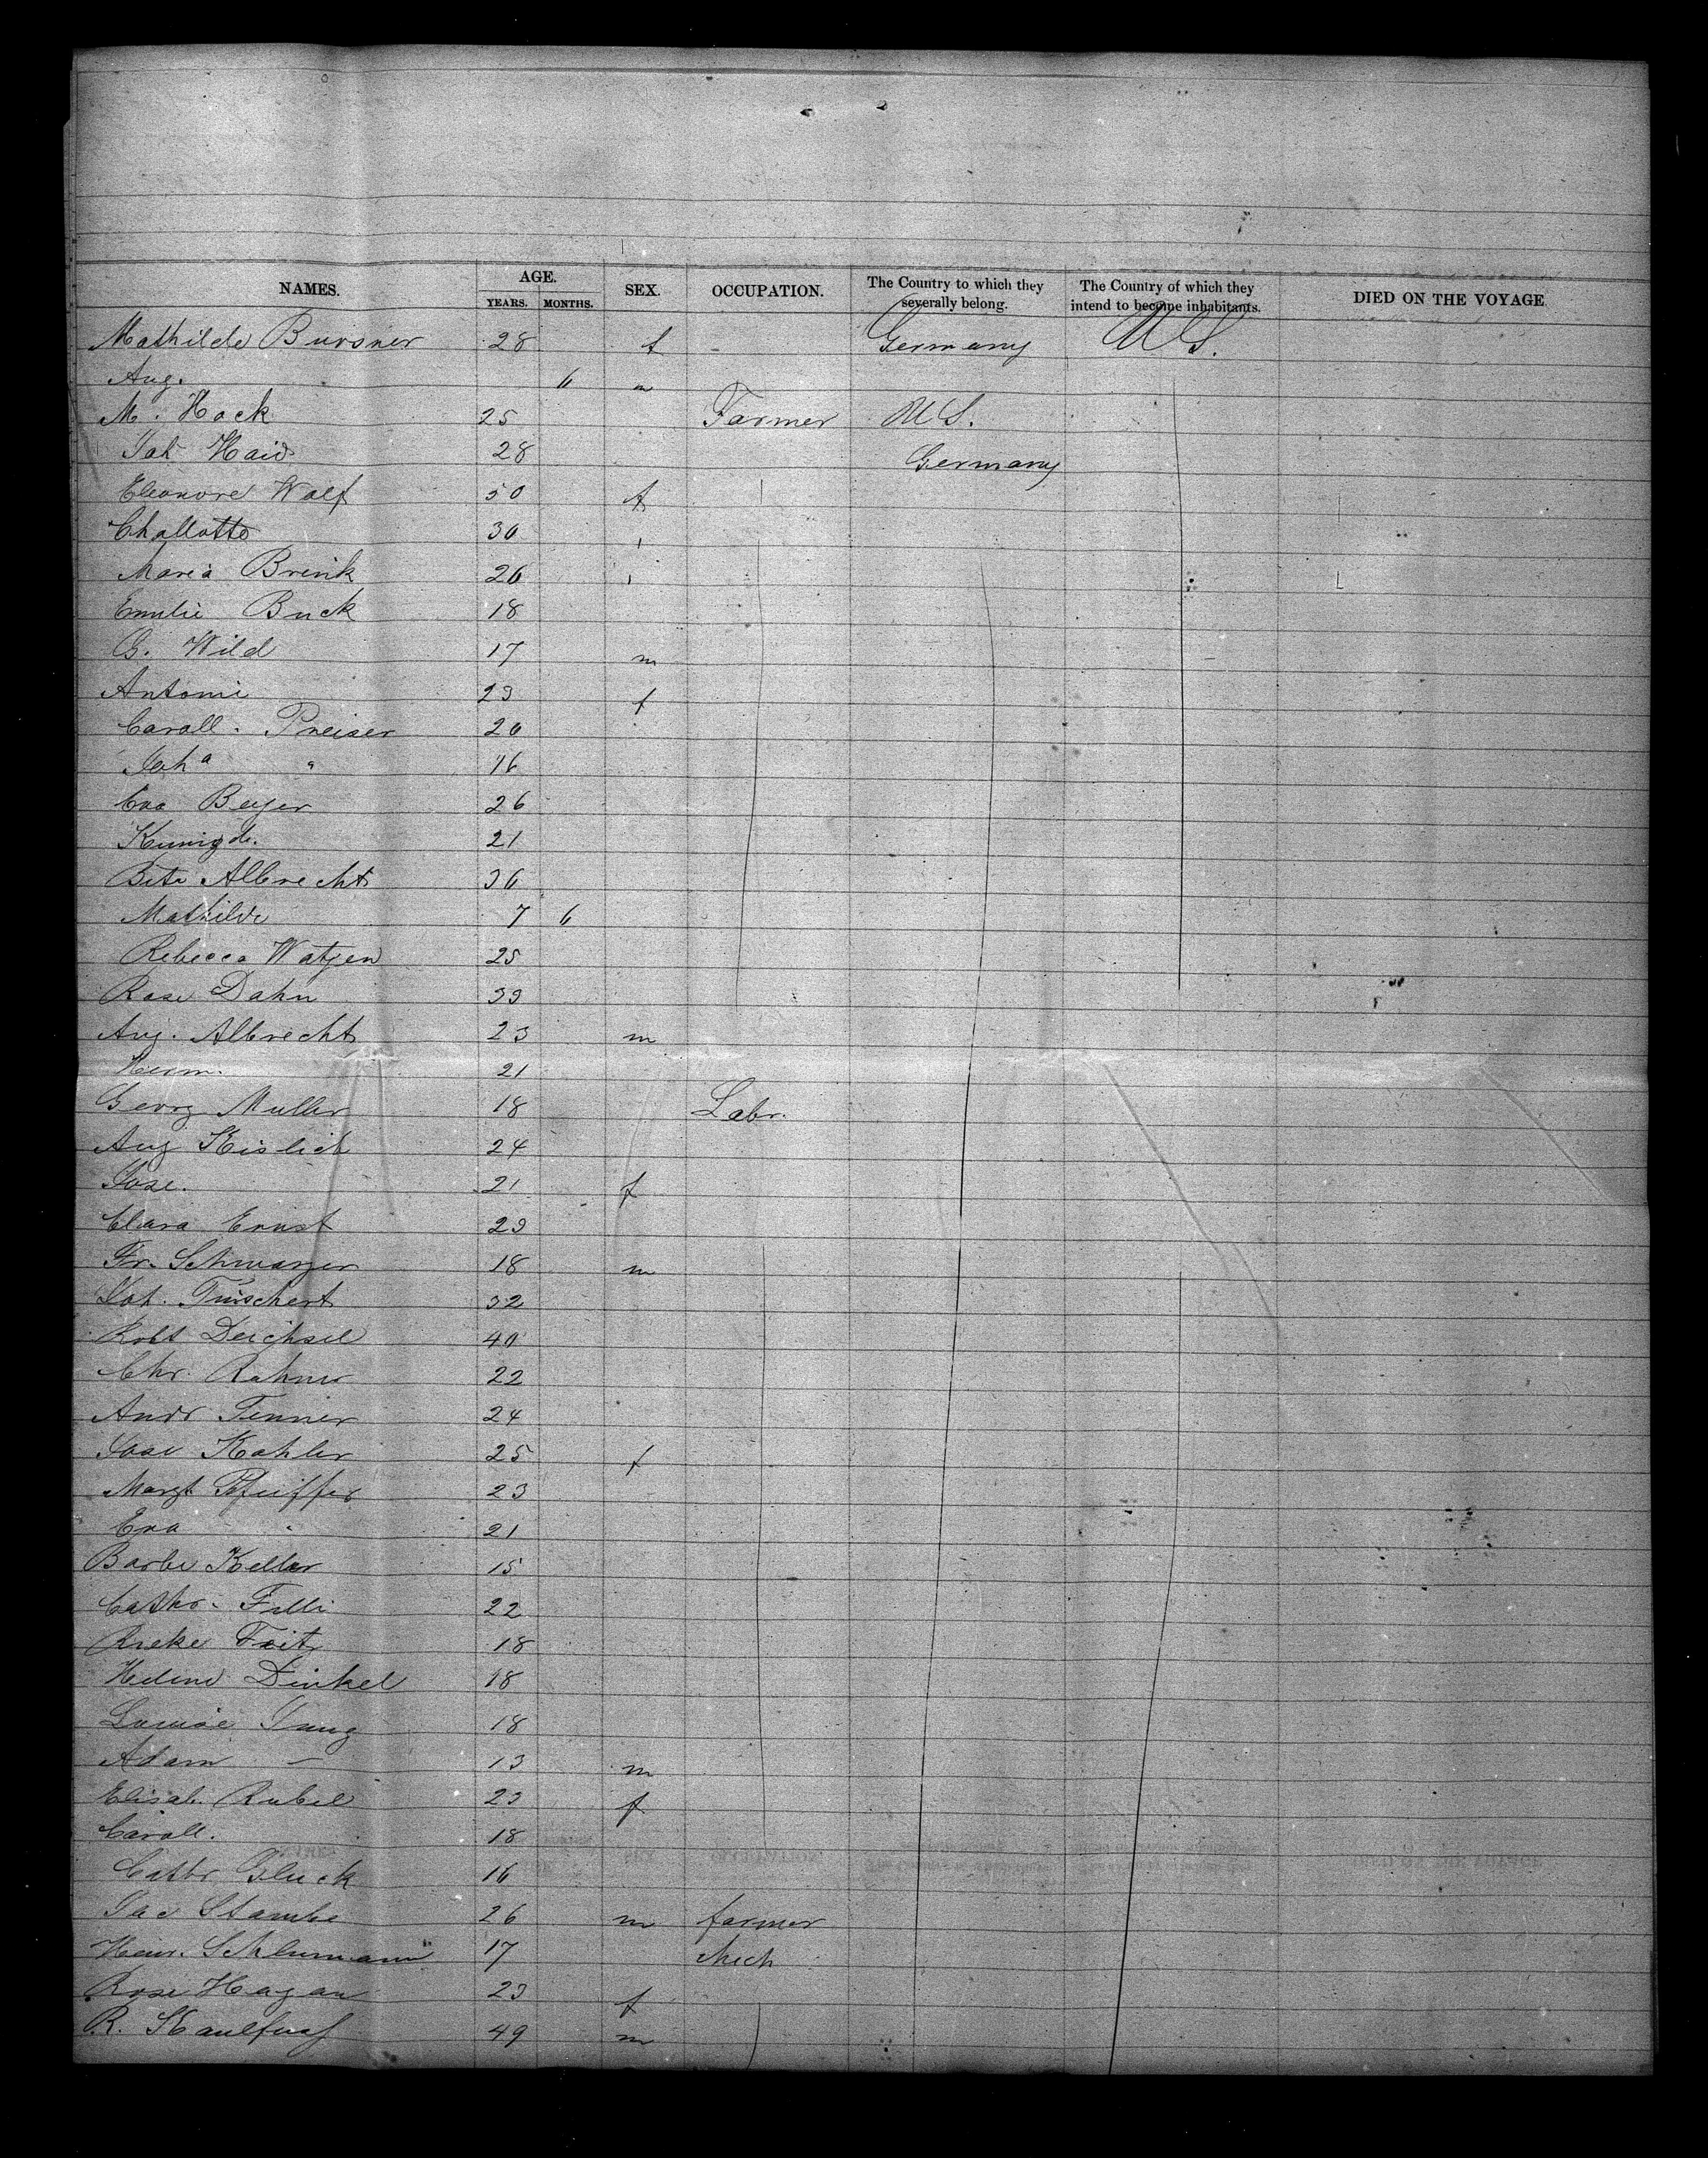 NAMES. AGE. YEARS. MONTHS. SEX. OCCUPATION. The Country to which they severally belong. The Country of which they intend to become inhabitants. DIED ON THE VOYAGE
Mathilde Bursner 28 f - Germany U S.
Aug. 6 m
M. Hock 25 Farmer U S.
Joh Haid 28 Germany
Eleonore Wolf 50 f
Challotte 30
Maria Brink 26
Emilie Buck 18
G. Wild 17 m
Antonie 23 f
Caroll. Preiser 20
Joha " 16
Eva Beyer 26
Kunigde. 21
Albrecht 36
Mathilde 7 6
Rebecca Watjen 25
Rosa Dahn 33
Aug. Albrecht 23 m
Herm. 21
Georg Muller 18 Labr.
Aug Kislich 24
Jose. 21 f
Clara Ernst 23
Fr. Schwarzer 18 m
Joh. Tuischert 32
Robt Deichsel 40
Chr. Rahner 22
Andr Tenner 24
Jose Kohler 25 f
Margt Pfeiffer 23
Eva " 21
Barbe Keller 15
Cathr. Filli 22
Rieke Foitz 18
Helene Dinkel 18
Louise Jung 18
Adam — 13 m
Elisab. Rubel 23 f
Caroll. 18
Cathr Gluck 16
Jac Stambe 26 m farmer
Heinr. Schlumann 17 Mech
Rosa Hagan 23 f
R. Kaulfuss 49 m